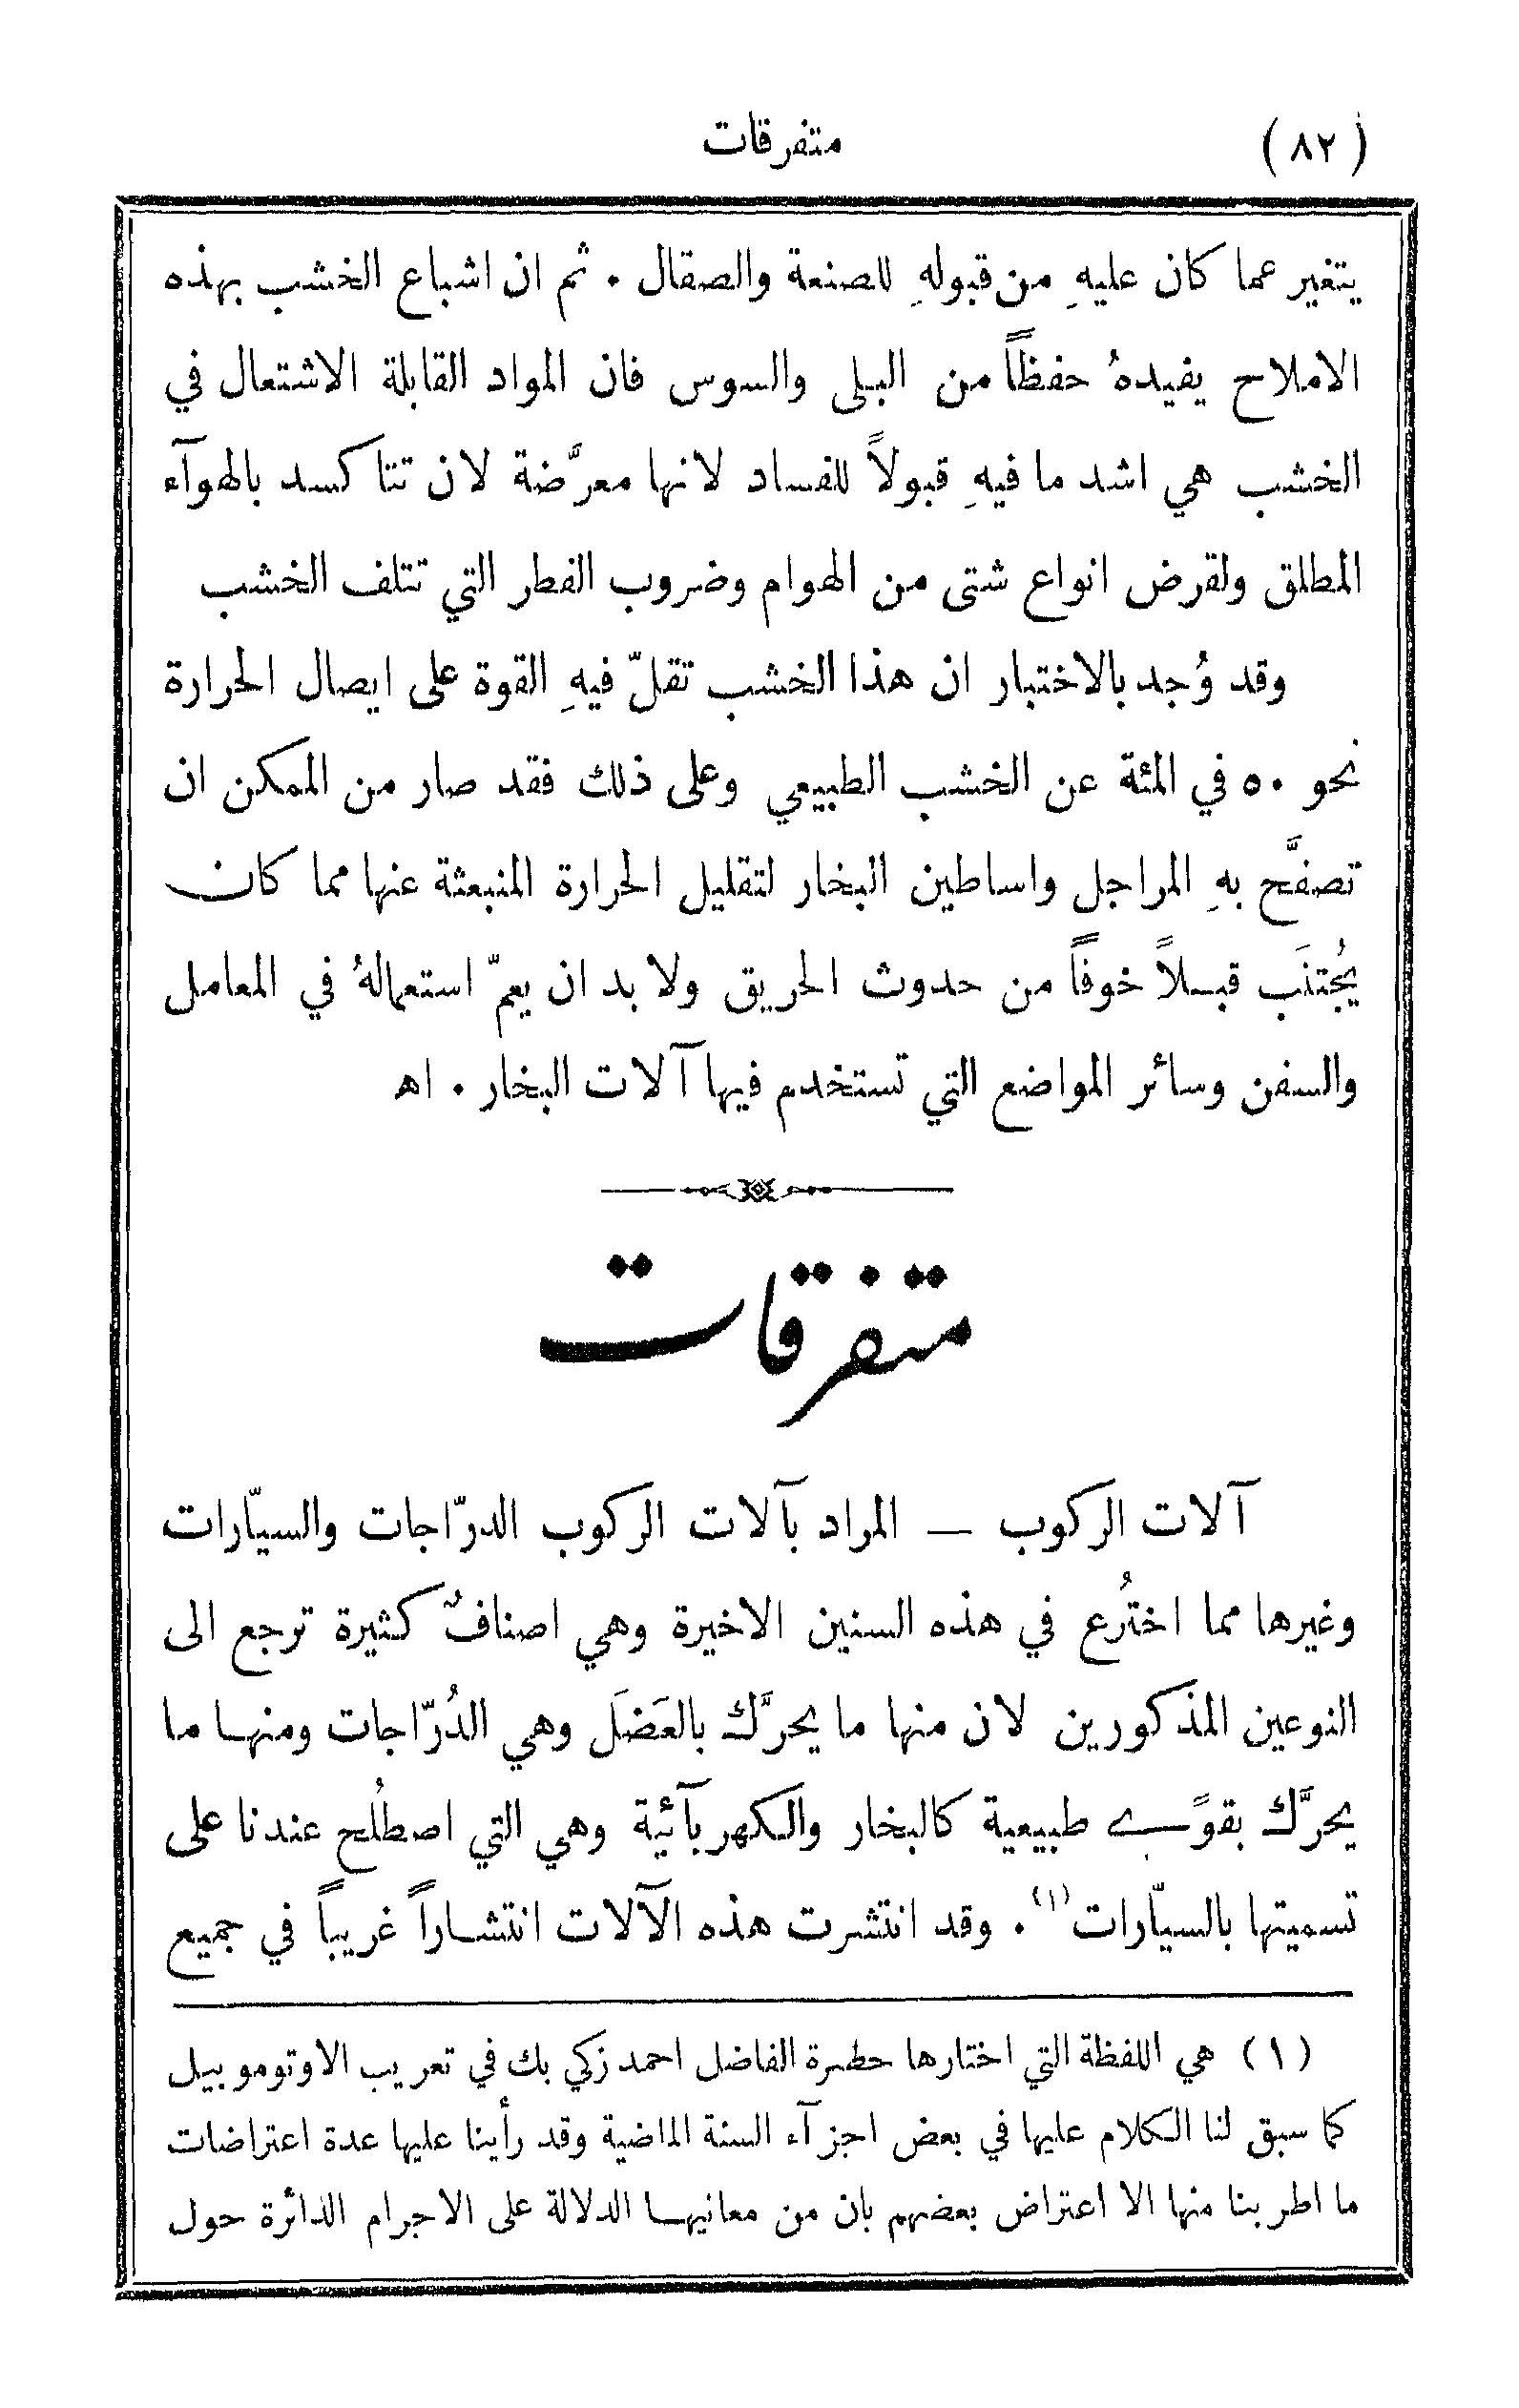 (٨٢) متفرقات
يتغير عما كان عليهِ من قبولهِ للصنعة والصقال · ثم ان اشباع الخشب بهذه
الاملاح يفيدهُ حفظاً من البلى والسوس فان المواد القابلة الاشتعال في
الخشب هي اشد ما فيهِ قبولاً للفساد لانها معرَّضة لان تتأكسد بالهوآء
المطلق ولقرض انواع شتى من الهوام وضروب الفطر التي تتلف الخشب
وقد وُجد بالاختبار ان هذا الخشب تقلّ فيهِ القوة على ايصال الحرارة
نحو ٥٠ في المئة عن الخشب الطبيعي وعلى ذلك فقد صار من الممكن ان
تصفَّح بهِ المراجل واساطين البخار لتقليل الحرارة المنبعثة عنها مما كان
يُجتنَب قبلاً خوفاً من حدوث الحريق ولا بد ان يعمّ استعمالهُ في المعامل
والسفن وسائر المواضع التي تستخدم فيها آلات البخار · اهـ
متفرقات
آلات الركوب — المراد بآلات الركوب الدرّاجات والسيّارات
وغيرها مما اختُرع في هذه السنين الاخيرة وهي اصنافٌ كثيرة ترجع الى
النوعين المذكورين لان منها ما يحرَّك بالعَضَل وهي الدُرّاجات ومنها ما
يحرَّك بقوًى طبيعية كالبخار والكهربآئية وهي التي اصطُلح عندنا على
تسميتها بالسيّارات (١) · وقد انتشرت هذه الآلات انتشاراً غريباً في جميع
(١) هي اللفظة التي اختارها حضرة الفاضل احمد زكي بك في تعريب الاوتوموبيل
كما سبق لنا الكلام عليها في بعض اجزآء السنة الماضية وقد رأينا عليها عدة اعتراضات
ما اطربنا منها الا اعتراض بعضهم بان من معانيها الدلالة على الاجرام الدائرة حول